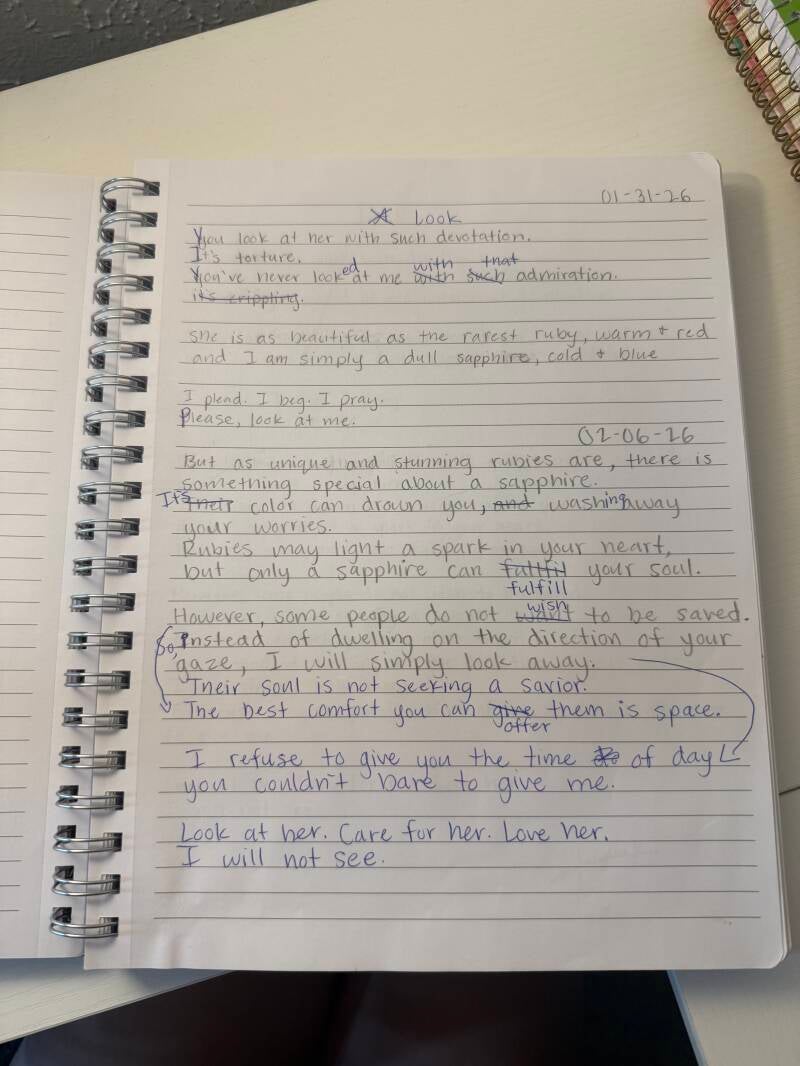 01-31-26
A Look
You look at her with such devotation.
It's torture.
You've never looked at me with that with such admiration.
it's crippling.
she is as beautiful as the rarest ruby, warm + red
and I am simply a dull sapphire, cold + blue
I plead. I beg. I pray.
Please, look at me.
02-06-26
But as unique and stunning rubies are, there is
something special about a sapphire.
It's their color can drown you, and washing away
your worries.
Rubies may light a spark in your heart,
but only a sapphire can fullfil your soul.
fulfill
However, some people do not want wish to be saved.
So, Instead of dwelling on the direction of your
gaze, I will simply look away.
Their soul is not seeking a savior.
The best comfort you can give them is space.
offer
I refuse to give you the time of day
you couldn't bare to give me.
Look at her. Care for her. Love her.
I will not see.